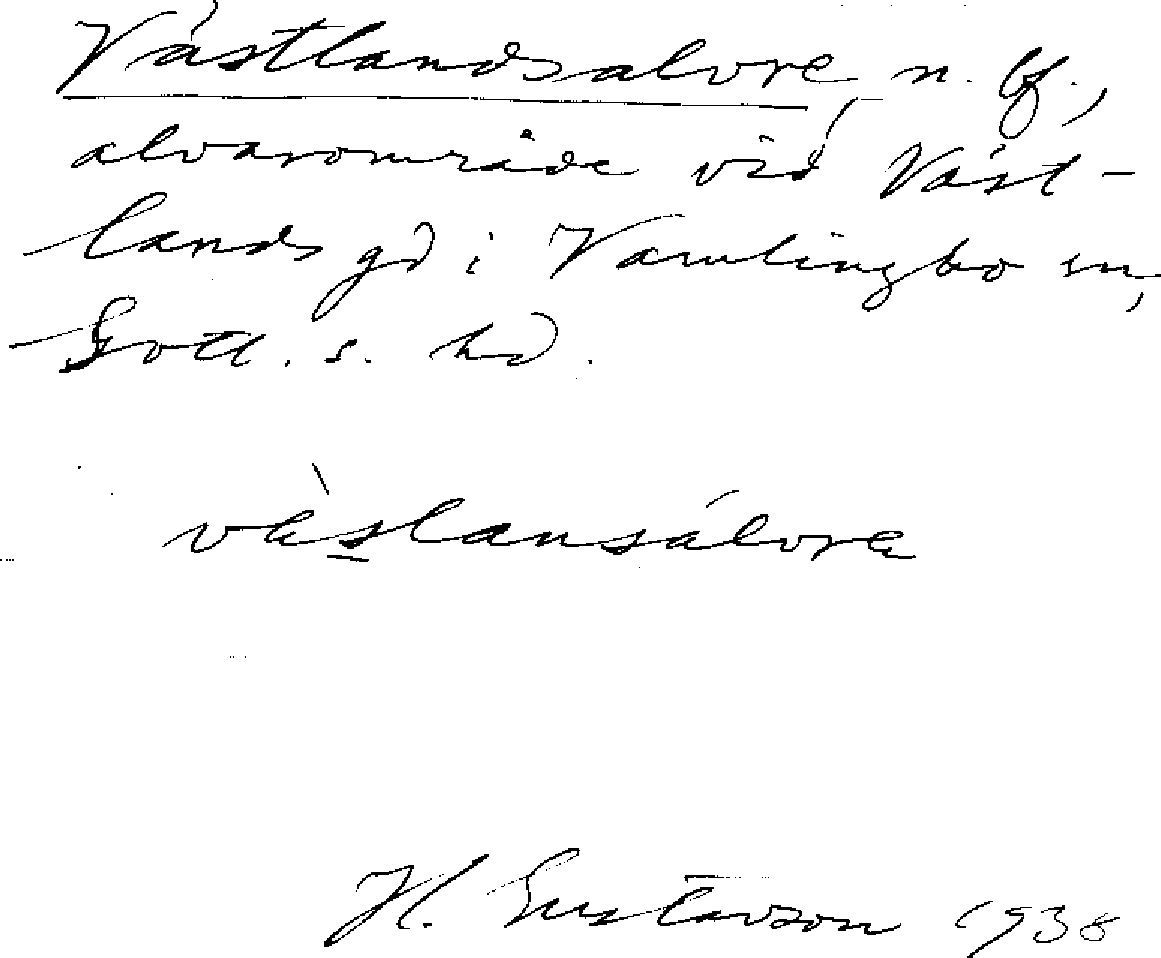 Västlandsalvre n. bf.,
alvarområde vid Väst-
lands gd i Vamlingbo sn,
Gotl. s. hd.
vàslansálvre
H. Gustavson 1938